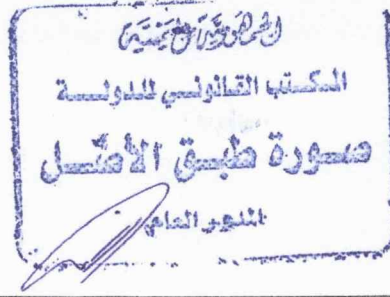 الجمهورية اليمنية
المكتب القانوني للدولة
صورة طبق الأصل
المدير العام